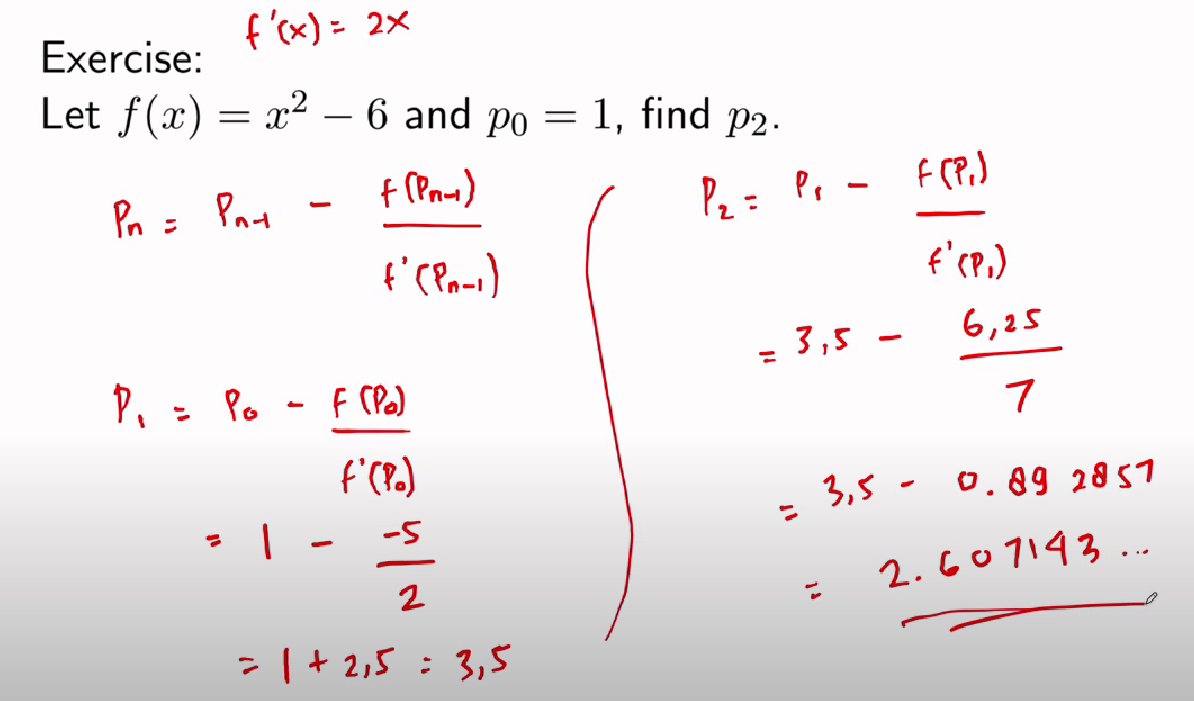 f'(x) = 2x
Exercise:
Let f(x) = x² − 6 and p₀ = 1, find p₂.
Pₙ = Pₙ₋₁ − f(Pₙ₋₁) / f'(Pₙ₋₁)
P₁ = P₀ − F(P₀) / f'(P₀)
= 1 − -5 / 2
= 1 + 2,5 = 3,5
P₂ = P₁ − F(P₁) / f'(P₁)
= 3,5 − 6,25 / 7
= 3,5 − 0.892857
= 2.607143...